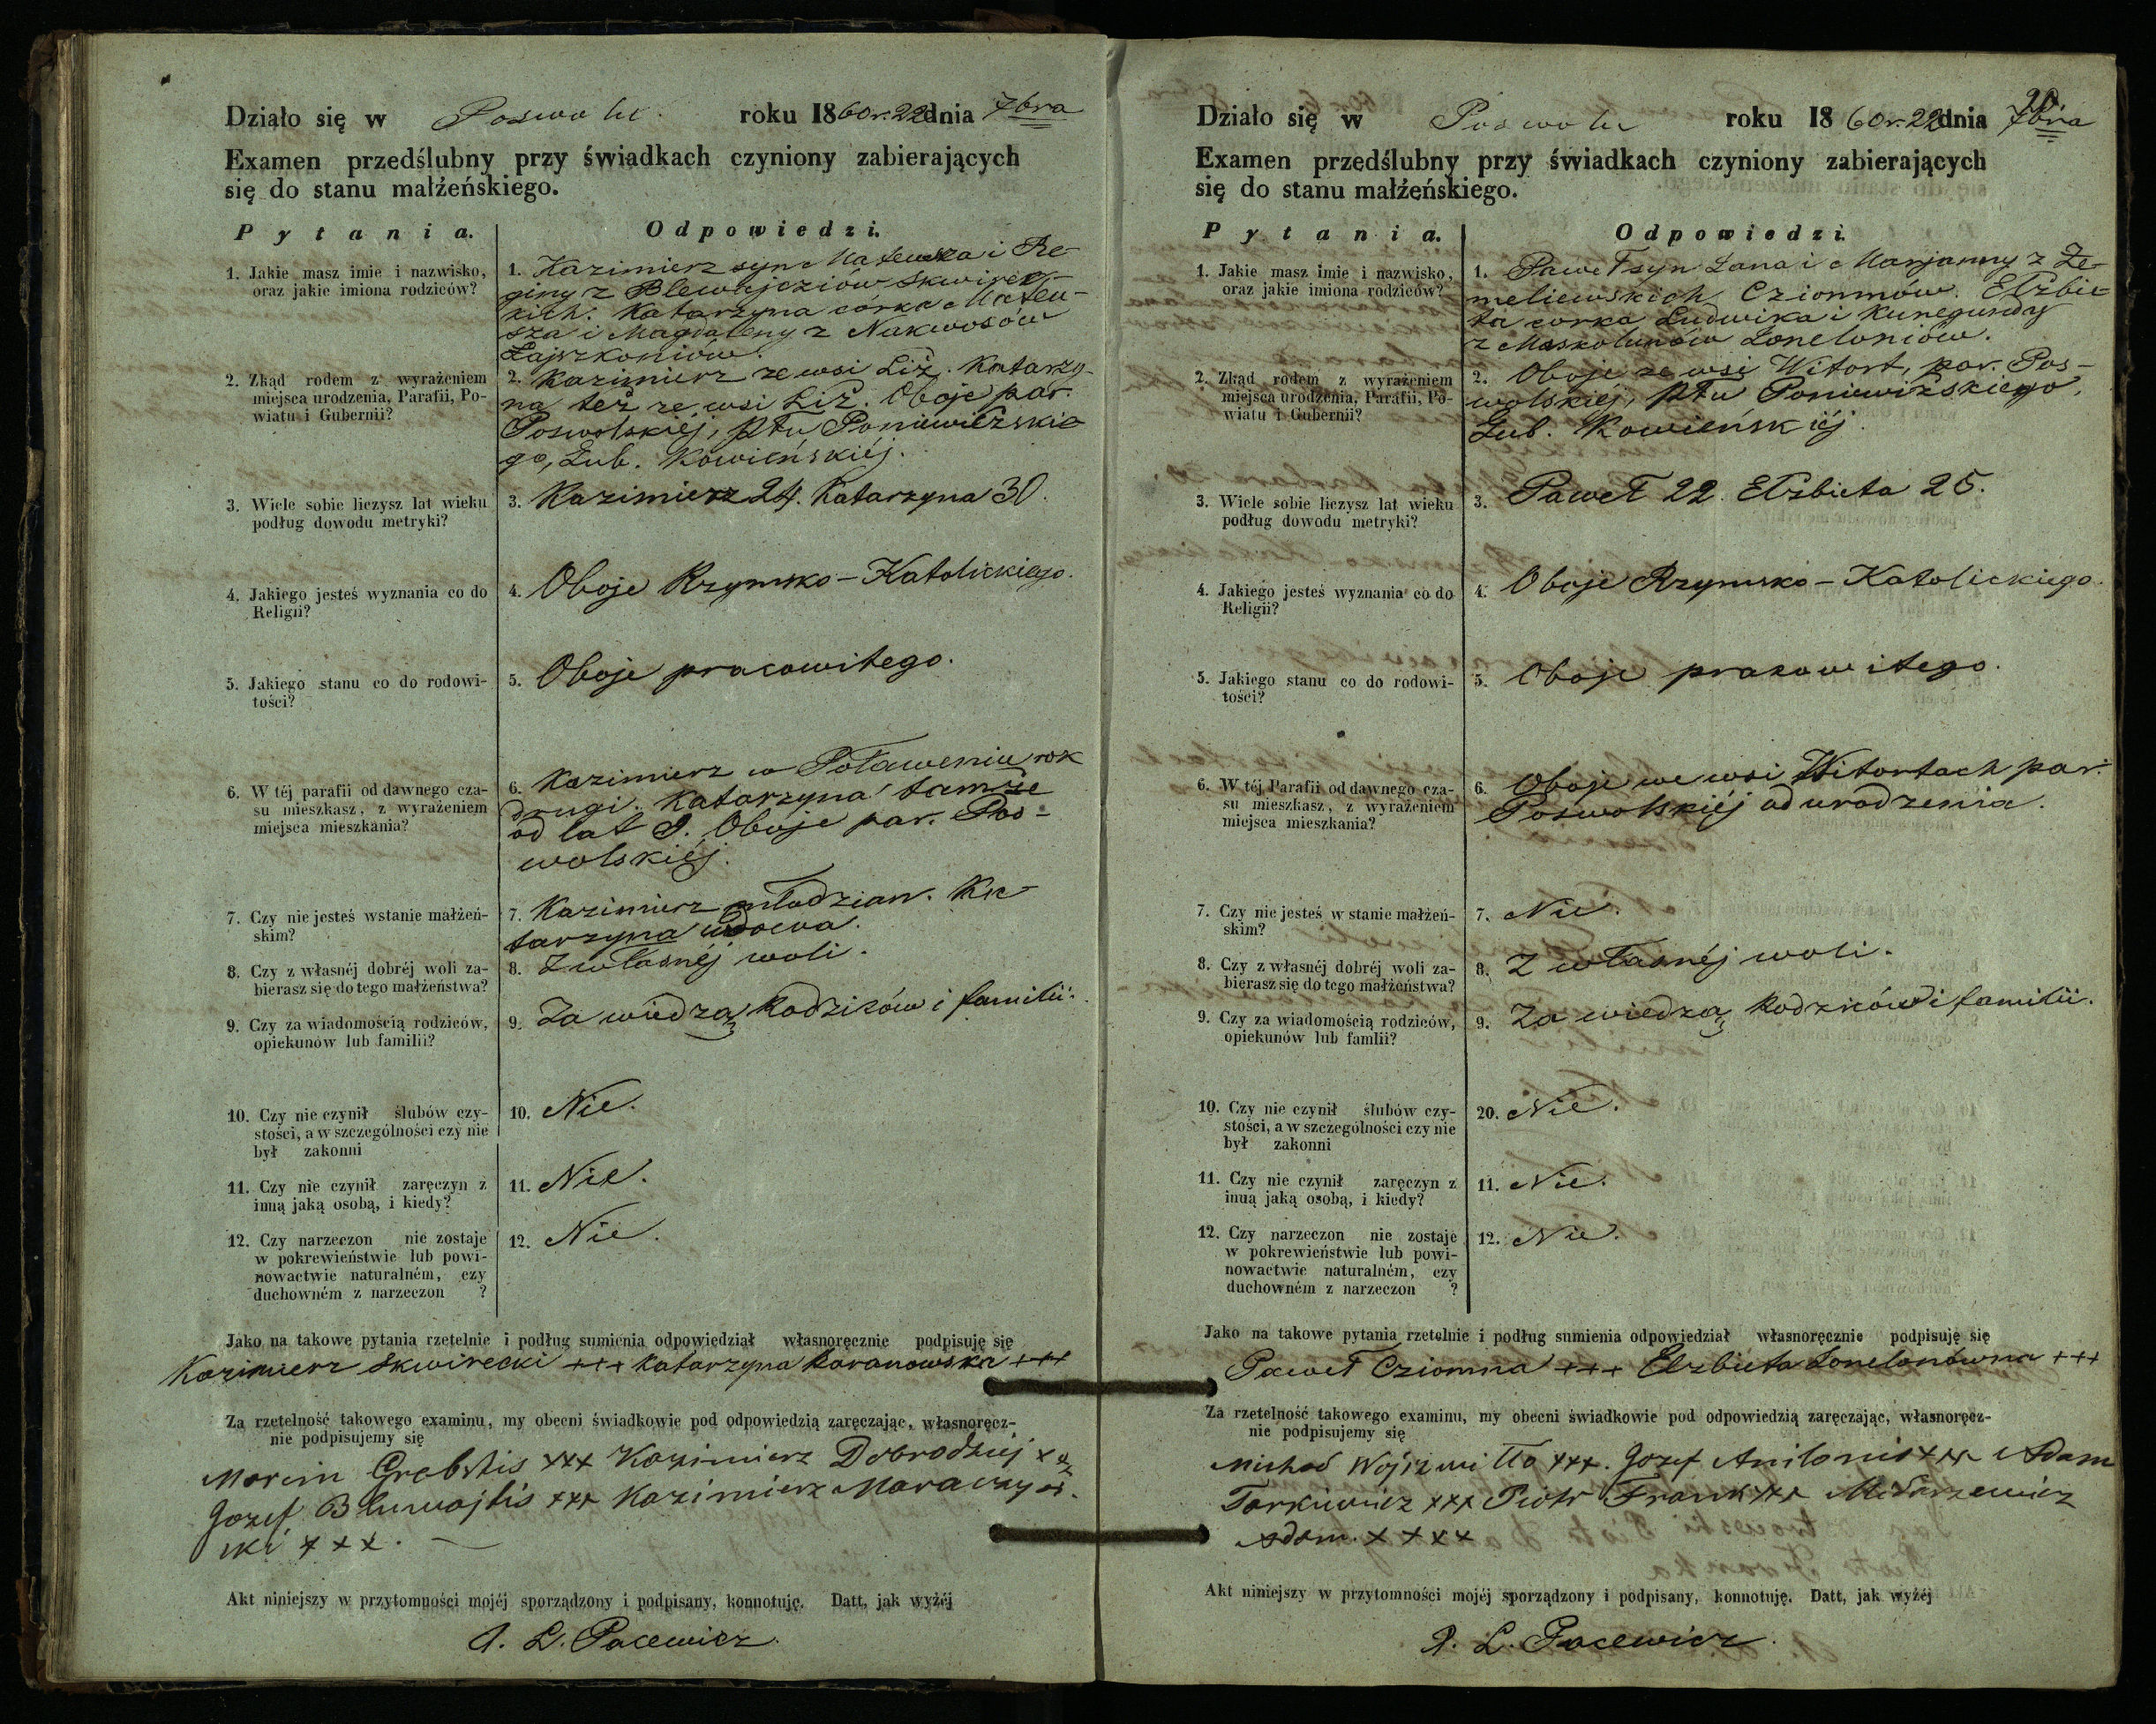 Działo się w Poswolu. roku 1860 r. 22 dnia 7bra
Examen przedślubny przy świadkach czyniony zabierających
się do stanu małżeńskiego.
Pytania. Odpowiedzi.
1. Jakie masz imie i nazwisko,
oraz jakie imiona rodziców?
1. Kazimierz syn Mateusza i Re-
giny z Blewajciów Skwirec-
kich. Katarzyna córka Mateu-
sza i Magdaleny z Nakwosów
Łajszkoniów.
2. Zkąd rodem z wyrażeniem
miejsca urodzenia, Parafii, Po-
wiatu i Gubernii?
2. Kazimierz ze wsi Liż. Katarzy-
na też ze wsi Liż. Oboje par.
Poswolskiej, Ptu Poniewieżskie
go, Gub. Kowieńskiéj.
3. Wiele sobie liczysz lat wieku
podług dowodu metryki?
3. Kazimierz 24. Katarzyna 30.
4. Jakiego jesteś wyznania co do
Religii?
4. Oboje Rzymsko-Katolickiego.
5. Jakiego stanu co do rodowi-
tości?
5. Oboje pracowitego.
6. W téj parafii od dawnego cza-
su mieszkasz, z wyrażeniem
miejsca mieszkania?
6. Kazimierz w Poławeniu rok
drugi. Katarzyna tamże
od lat 9. Oboje par. Pos-
wolskiéj.
7. Czy nie jesteś wstanie małżeń-
skim?
7. Kazimierz młodzian. Ka-
tarzyna wdowa.
8. Czy z własnéj dobréj woli za-
bierasz się do tego małżeństwa?
8. Z własnéj woli.
9. Czy za wiadomością rodziców,
opiekunów lub familii?
9. Za wiedzą Rodziców i familii.
10. Czy nie czynił ślubów czy-
stości, a w szczególności czy nie
był zakonni
10. Nie.
11. Czy nie czynił zaręczyn z
inną jaką osobą, i kiedy?
11. Nie.
12. Czy narzeczon nie zostaje
w pokrewieństwie lub powi-
nowactwie naturalném, czy
duchowném z narzeczon ?
12. Nie.
Jako na takowe pytania rzetelnie i podług sumienia odpowiedział własnoręcznie podpisuję się
Kazimierz Skwirecki +++ Katarzyna Baranowska +++
Za rzetelność takowego examinu, my obecni świadkowie pod odpowiedzią zaręczając, własnoręcz-
nie podpisujemy się
Marcin Grabskis xxx Kazimierz Dobrodziej xxx
Jozef Bluwajtis xxx Kazimierz
xxx.
Akt niniejszy w przytomności mojéj sporządzony i podpisany, konnotuję. Datt, jak wyżéj
A. L. Pacewicz.
20
Działo się w Poswolu roku 1860 r. 22 dnia 7bra
Examen przedślubny przy świadkach czyniony zabierających
się do stanu małżeńskiego.
Pytania. Odpowiedzi.
1. Jakie masz imie i nazwisko,
oraz jakie imiona rodziców?
1. Paweł syn Jana i Marjanny z Że-
meliewskich Czionmów. Elżbie-
ta corka Ludwika i Kunegundy
z Moskolunów Joneloniów.
2. Zkąd rodem z wyrażeniem
miejsca urodzenia, Parafii, Po-
wiatu i Gubernii?
2. Oboje ze wsi Witort, par. Pos-
wolskiéj, Ptu Poniewiżskiego,
Gub. Kowieńskiéj.
3. Wiele sobie liczysz lat wieku
podług dowodu metryki?
3. Paweł 22. Elżbieta 25.
4. Jakiego jesteś wyznania co do
Religii?
4. Oboje Rzymsko-Katolickiego.
5. Jakiego stanu co do rodowi-
tości?
5. Oboje prakowitego.
6. W téj Parafii od dawnego cza-
su mieszkasz, z wyrażeniem
miejsca mieszkania?
6. Oboje we wsi Witortach par.
Poswolskiéj od urodzenia.
7. Czy nie jesteś w stanie małżeń-
skim?
7. Nie.
8. Czy z własnéj dobréj woli za-
bierasz się do tego małżeństwa?
8. Z własnéj woli.
9. Czy za wiadomością rodziców,
opiekunów lub famlii?
9. Za wiedzą Rodziców i familii.
10. Czy nie czynił ślubów czy-
stości, a w szczególności czy nie
był zakonni
20. Nie.
11. Czy nie czynił zaręczyn z
inną jaką osobą, i kiedy?
11. Nie.
12. Czy narzeczon nie zostaje
w pokrewieństwie lub powi-
nowactwie naturalném, czy
duchowném z narzeczon ?
12. Nie.
Jako na takowe pytania rzetelnie i podług sumienia odpowiedział własnoręcznie podpisuję się
Paweł Czionma +++ Elzbieta Jonelonówna +++
Za rzetelność takowego examinu, my obecni świadkowie pod odpowiedzią zaręczając, własnoręcz-
nie podpisujemy się
Michał Wojzwiłło xxx. Jozef Anilonis xxx Adam
Tarkiewicz xxx Piotr Frank xxx
Adam. xxxx
Akt niniejszy w przytomności mojéj sporządzony i podpisany, konnotuję. Datt, jak wyżéj
A. L. Pacewicz.